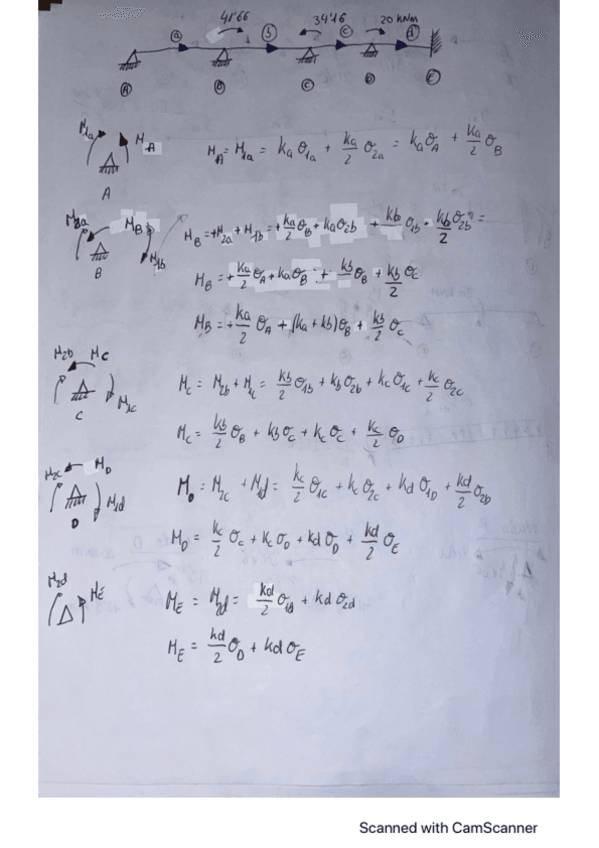 41'66 34'16 20 kNm
a b c d
A B C D E
M1a MA
A
MA = M1a = ka θ1a + ka/2 θ2a = ka θA + ka/2 θB
M2a MB M1b
B
MB = +M2a + M1b = + ka/2 θB + ka θ2b + kb θ1b + kb/2 θ2b =
MB = + ka/2 θA + ka θB + kb θB + kb/2 θC
MB = + ka/2 θA + (ka + kb) θB + kb/2 θC
M2b MC M1c
C
MC = M2b + M1c = kb/2 θ1b + kb θ2b + kc θ1c + kc/2 θ2c
MC = kb/2 θB + kb θC + kc θC + kc/2 θD
M2c MD M1d
D
MD = M2c + M1d = kc/2 θ1c + kc θ2c + kd θ1D + kd/2 θ2D
MD = kc/2 θC + kc θD + kd θD + kd/2 θE
M2d ME
ME = M2d = kd/2 θ1d + kd θ2d
ME = kd/2 θD + kd θE
Scanned with CamScanner